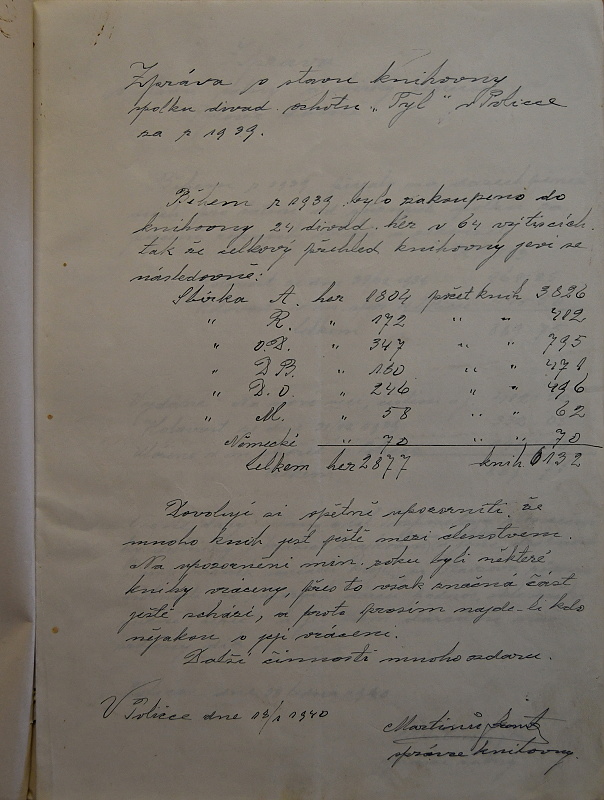 Zpráva o stavu knihovny
spolku divad. ochot. „Tyl" v Poličce
za r 1939.
Během r 1939 bylo zakoupeno do
knihovny 24 divad. her v 64 výtiscích.
tak že celkový přehled knihovny jeví se
následovně:
Sbírka A. her 1804 počet knih 3826
„ R. „ 172 „ „
„ O.D. „ 347 „ „ 795
„ D B. „ 180 „ „ 471
„ D. O. „ 246 „ „ 496
„ M. „ 58 „ „ 62
Německé „ 70 „ „ 70
Celkem her 2877 knih 6132
Dovoluji si opětně upozorniti, že
mnoho knih jest ještě mezi členstvem.
Na upozornění min. roku byli některé
knihy vráceny, přes to však značná část
ještě schází, a proto prosím najde-li kdo
nějakou o její vrácení.
Další činnosti mnoho zdaru.
V Poličce dne 18/1 1940
Martinů
správce knihovny.